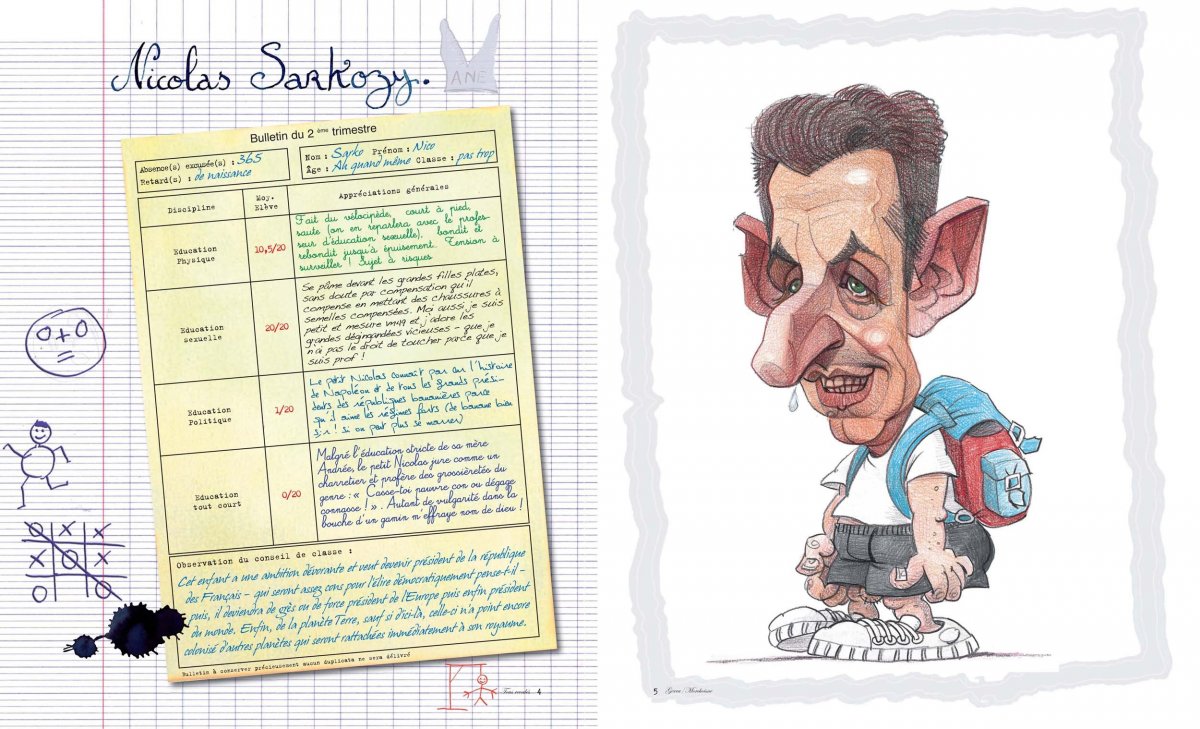 Nicolas Sarkozy.
ANE
Bulletin du 2 ème trimestre
Absence(s) excusée(s) : 365
Retard(s) : de naissance
Nom : Sarko Prénom : Nico
Âge : Ah quand même Classe : pas trop
Discipline
Moy.
Elève
Appréciations générales
Education
Physique
10,5/20
Fait du vélocipède, court à pied,
saute (on en reparlera avec le profes-
seur d'éducation sexuelle), bondit et
rebondit jusqu'à épuisement. Tension à
surveiller ! Sujet à risques
Education
sexuelle
20/20
Se pâme devant les grandes filles plates,
sans doute par compensation qu'il
compense en mettant des chaussures à
semelles compensées. Moi aussi je suis
petit et mesure 1m49 et j'adore les
grandes dégingandées vicieuses - que je
n'ai pas le droit de toucher parce que je
suis prof !
Education
Politique
1/20
Le petit Nicolas connaît par cœur l'histoire
de Napoléon et de tous les grands prési-
dents des républiques bananières parce
qu'il aime les régimes forts (de banane bien
sûr ! si on peut plus se marrer)
Education
tout court
0/20
Malgré l'éducation stricte de sa mère
Andrée, le petit Nicolas jure comme un
charretier et profère des grossièretés du
genre : « Casse-toi pauvre con ou dégage
connasse ! ». Autant de vulgarité dans la
bouche d'un gamin m'effraye nom de dieu !
Observation du conseil de classe :
Cet enfant a une ambition dévorante et veut devenir président de la république
des Français - qui seront assez cons pour l'élire démocratiquement pense-t-il -
puis, il deviendra de grès ou de force président de l'Europe puis enfin président
du monde. Enfin, de la planète Terre, sauf si d'ici-là, celle-ci n'a point encore
colonisé d'autres planètes qui seront rattachées immédiatement à son royaume.
Bulletin à conserver précieusement aucun duplicata ne sera délivré
0+0
=
O X X
X O X
O O
4
5